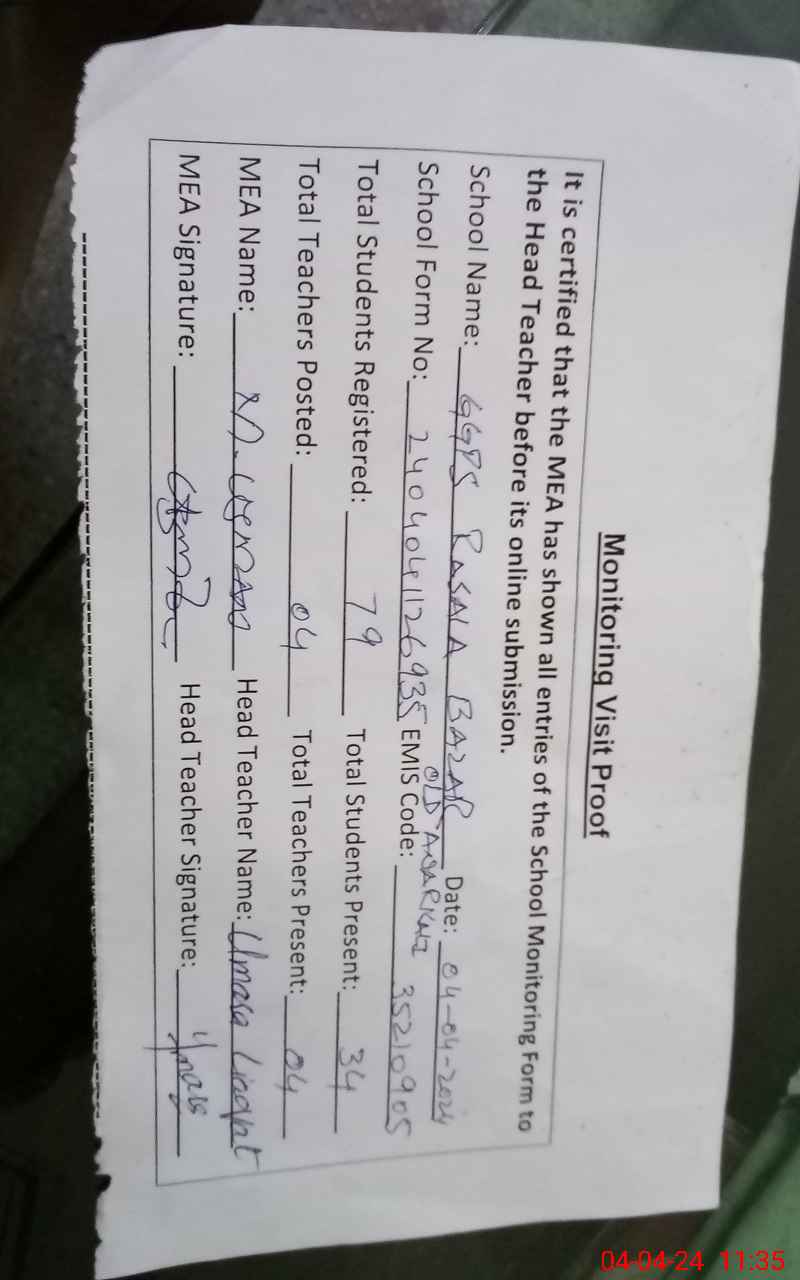 Monitoring Visit Proof
It is certified that the MEA has shown all entries of the School Monitoring Form to
the Head Teacher before its online submission.
School Name: GGPS RASALA BAZAR Date: 04-04-2024
OLD ANARKALI
School Form No: 240404112693S EMIS Code: 35210905
Total Students Registered: 79 Total Students Present: 34
Total Teachers Posted: 04 Total Teachers Present: 04
MEA Name: M. USMAN Head Teacher Name:
MEA Signature: Head Teacher Signature:
04-04-24 11:35